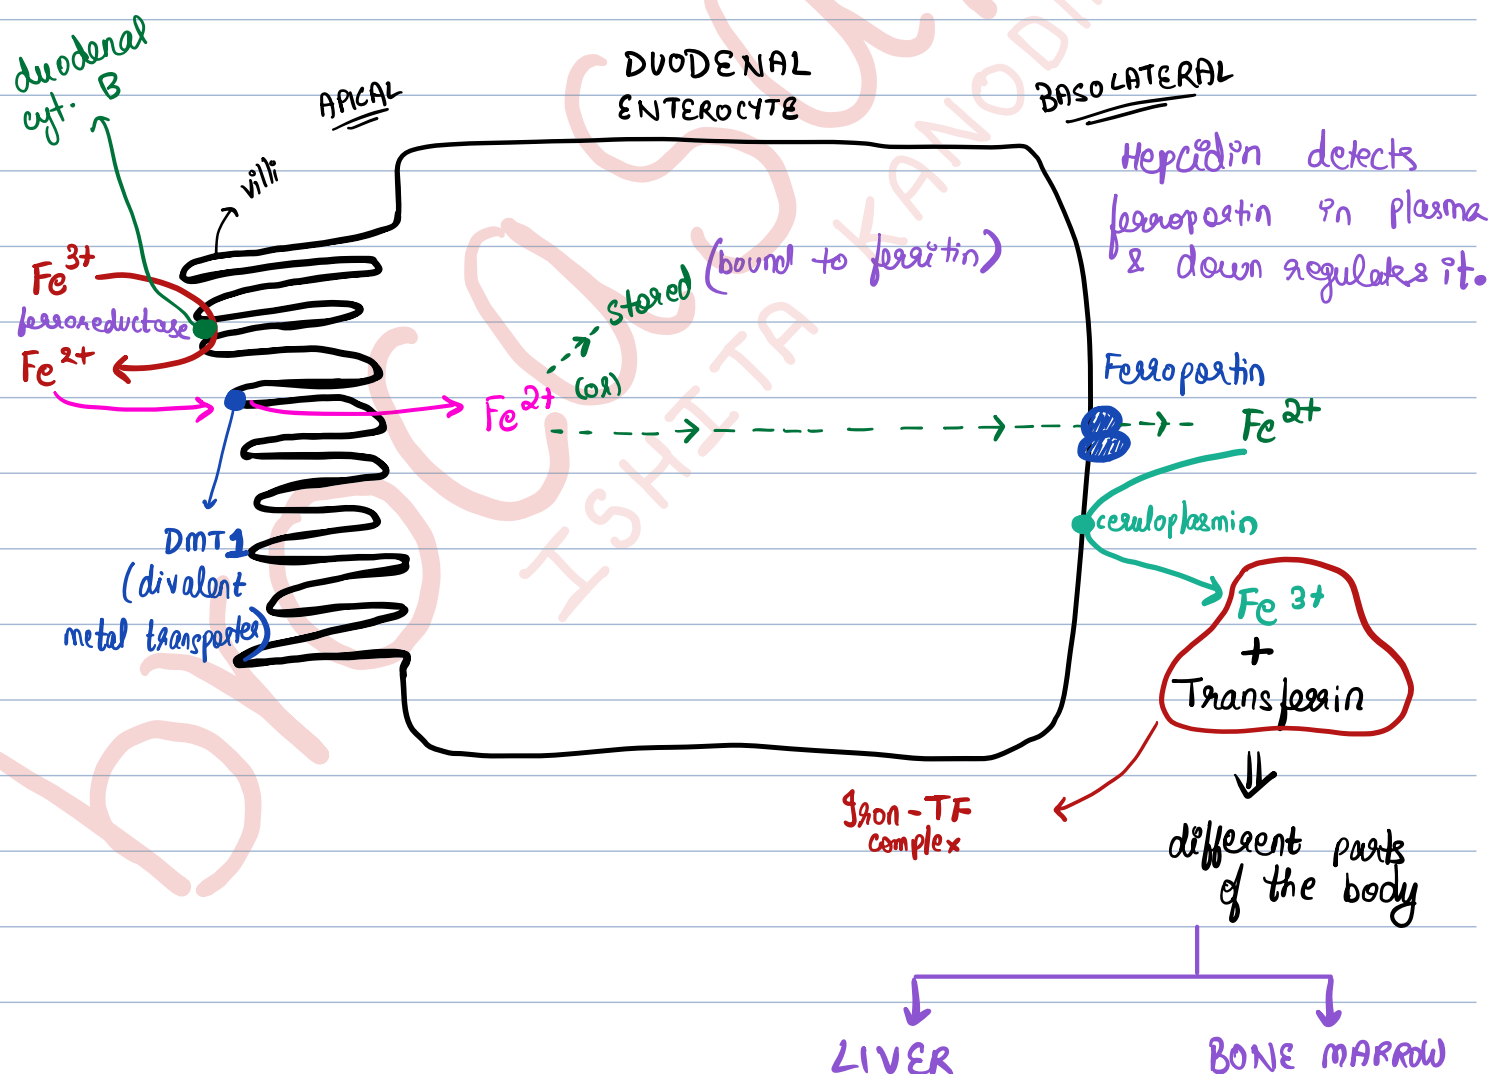 duodenal
cyt. B
APICAL
DUODENAL
ENTEROCYTE
BASOLATERAL
villi
Hepcidin detects
ferroportin in plasma
& down regulates it.
Fe3+
ferroreductase
Fe2+
stored (bound to ferritin)
(or)
Fe2+
Ferroportin
Fe2+
ceruloplasmin
DMT1
(divalent
metal transporter)
Fe3+
+
Transferrin
Iron-TF
complex
different parts
of the body
LIVER
BONE MARROW
ISHITA KANODI